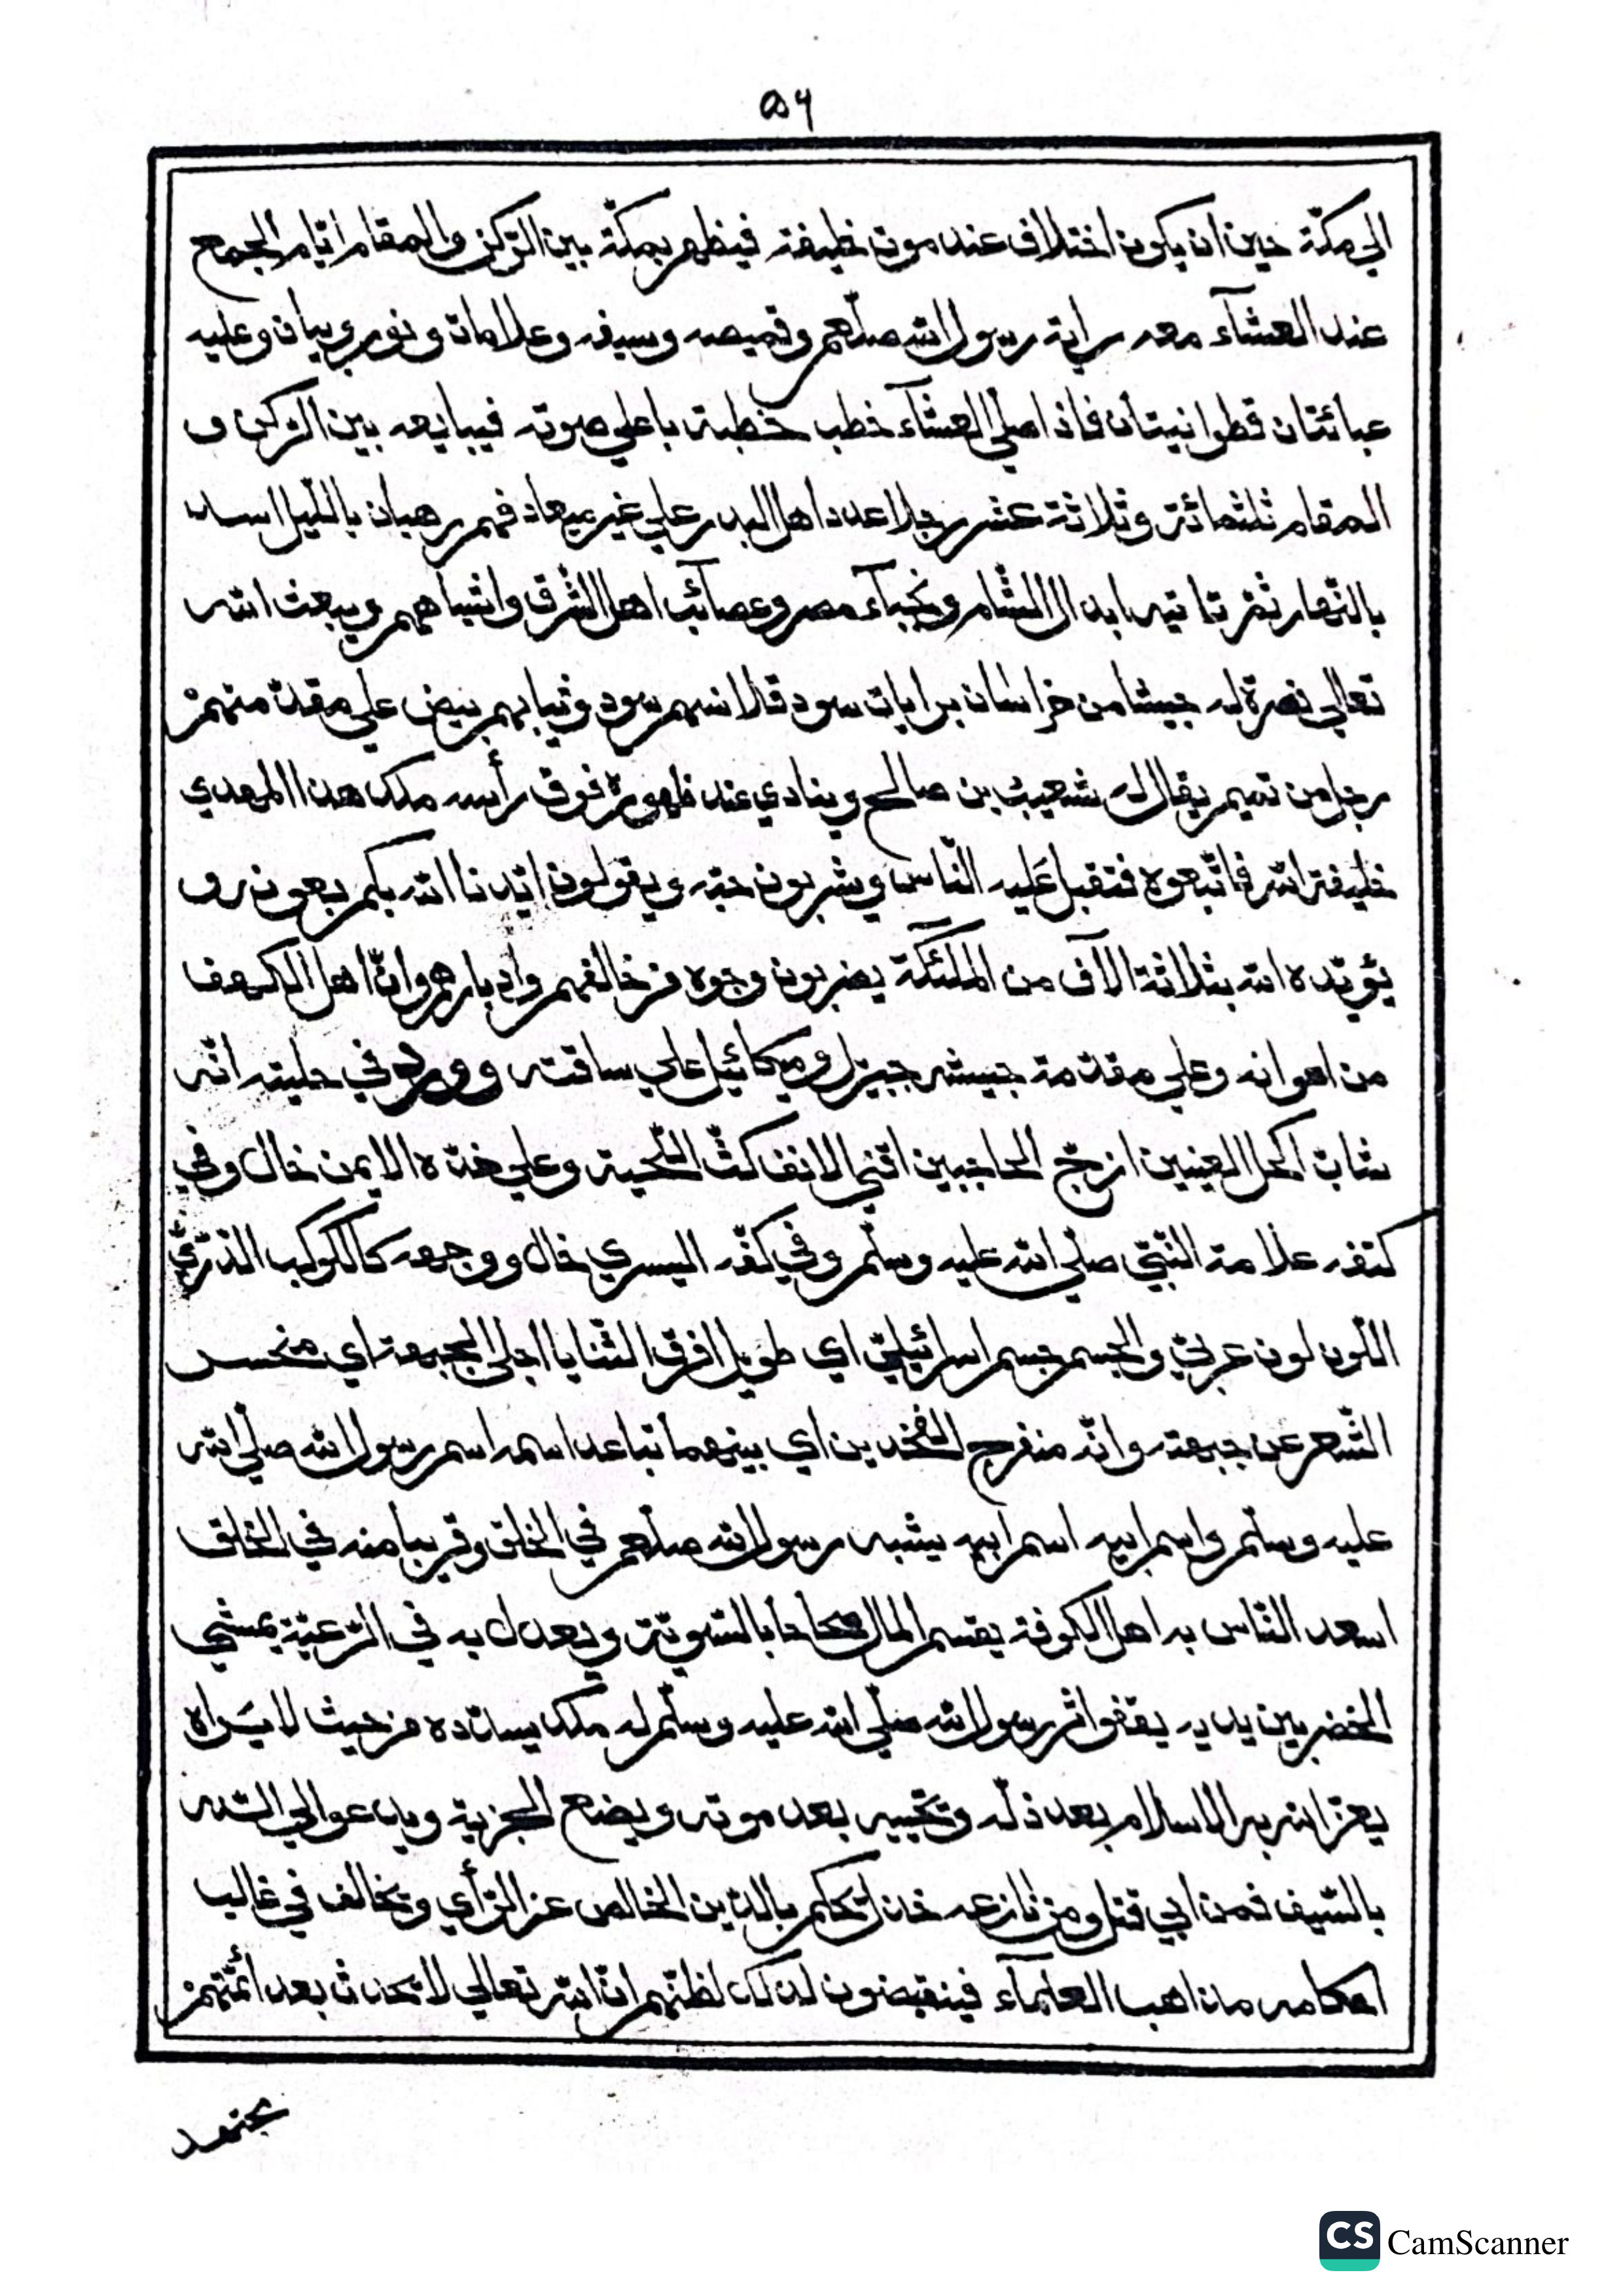 ۵۶
الي مكّة حين ان يكون اختلاف عند موت خليفة فيظهر بمكّة بين الرّكن والمقام ايّام الجمع
عند العشآء معه راية رسول الله صلّعم وقميصه وسيفه وعلامات ونور وبيان وعليه
عبائتان قطوانيتان فاذا صلّي العشآء خطب خطبة باعلي صوته فيبايعه بين الرّكن و
المقام ثلثمائة وثلاثة عشر رجلا عدد اهل البدر علي غير ميعاد فهم رهبان باللّيل اسد
بالنّهار ثمّ تاتيه ابدال الشّام ونجبآء مصر وعصائب اهل الشّرق واشباههم ويبعث الله
تعالي نصرة له جيشا من خراسان برايات سود قلانسهم سود وثيابهم بيض علي مقدّمتهم
رجل من تميم يقال له شعيب بن صالح وينادي عند ظهوره فوق رأسه ملك هذا المهدي
خليفة الله فاتّبعوه فتقبل عليه النّاس ويشربون حبّه ويقولون ايّدنا الله بكم بعون و
يؤيّده الله بثلاثة الآف من الملئكة يضربون وجوه من خالفهم وادبارهم وانّ اهل الكهف
من اعوانه وعلي مقدّمة جيشه جبرئيل وميكائيل علي ساقته وورد في حليته انّه
شابّ اكحل العينين ازجّ الحاجبين اقني الانف كثّ اللّحية وعلي خدّه الايمن خال وفي
كتفه علامة النّبيّ صلّي الله عليه وسلّم وفي كفّه اليسري خال ووجهه كالكوكب الدّرّيّ
اللّون لون عربيّ والجسم جسم اسرائيليّ اي طويل افرق الثّنايا اجلي الجبهة اي منحسر
الشّعر عن جبهته وانّه منفرج الفخذين اي بينهما تباعد اسمه اسم رسول الله صلّي الله
عليه وسلّم واسم ابيه اسم ابيه يشبه رسول الله صلّعم في الخلق وقريبا منه في الخلق
اسعد النّاس به اهل الكوفة يقسم المال صحاحا بالسّويّة ويعدل به في الرّعيّة يمشي
الخضر بين يديه يقفوا اثر رسول الله صلّي الله عليه وسلّم له ملك يسدّده من حيث لا يراه
يعزّ الله به الاسلام بعد ذلّه وتحييه بعد موته ويضع الجزية ويدعوا الي الله
بالسّيف فمن ابي قتل ومن نازعه خذل يحكم بالدّين الخالص عن الرّأي ويخالف في غالب
احكامه مذاهب العلمآء فينقبضون لذلك لظنّهم انّ الله تعالي لا يحدث بعد ائمّتهم
مجتهد
CS CamScanner